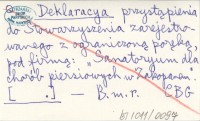 Deklaracya przystąpienia
do Stowarzyszenia zarejestro-
wanego z ograniczoną poręką,
pod firmą: "Sanatoryum dla
chorób piersiowych w Zakopanem.
[.....] — B.m.r. CBG
b) 1011/0094